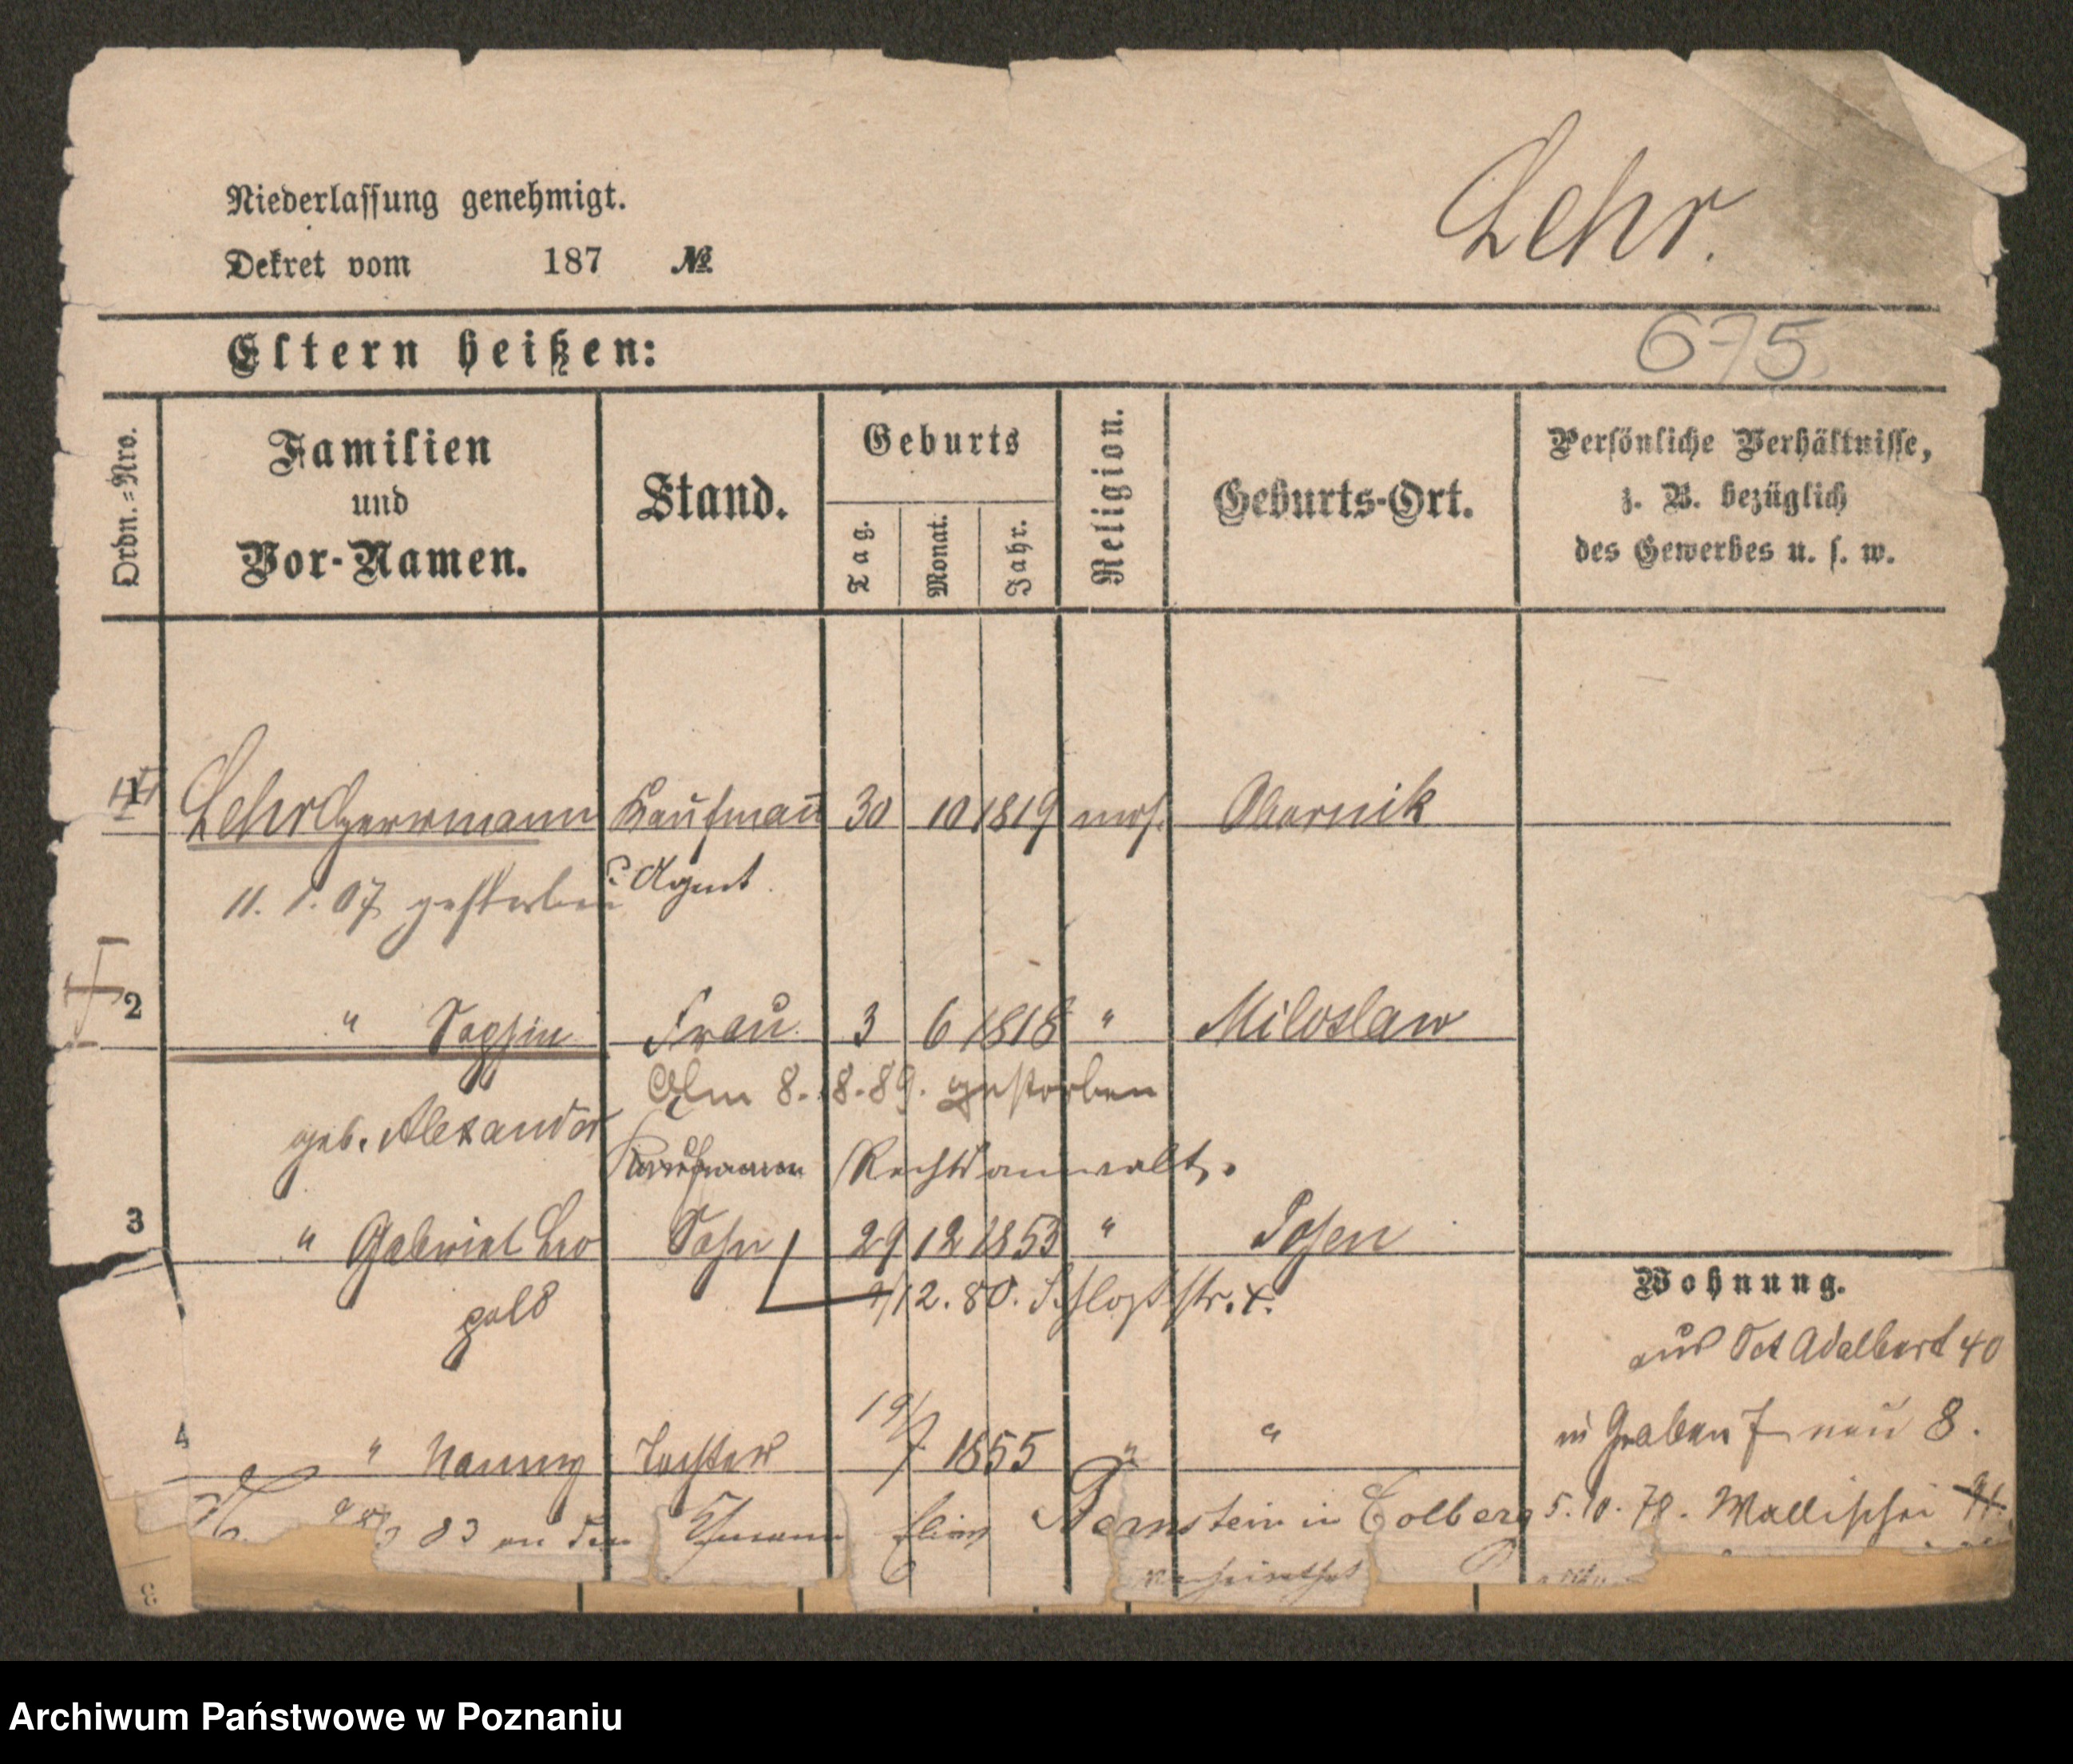 Niederlassung genehmigt.
Dekret vom 187 №
Lehr.
Eltern heißen:
675.
Ordn.=Nro.
Familien
und
Vor-Namen.
Stand.
Geburts
Tag.
Monat.
Jahr.
Religion.
Geburts-Ort.
Persönliche Verhältnisse,
z. B. bezüglich
des Gewerbes u. s. w.
1 Lehr Herrmann Kaufmann 30 10 1819 mos. Obornik
11. 1. 07 gestorben Agent
2 " Sophie Frau 3 6 1818 " Miloslaw
Am 8. 8. 89. gestorben
geb. Alexander
Kaufmann Rechtsanwalt.
3 " Gabriel Leo Sohn 29 12 1853 " Posen
pold /12. 80. Schloßstr. 4.
Wohnung.
aus Sct Adalbert 40
in Graben 7 neu 8.
4 " Nanny Tochter 19/7 1855 " "
83 an den Ehemann Bernstein in Colberg
5. 10. 78. Wallischei
verheirathet
3
Archiwum Państwowe w Poznaniu